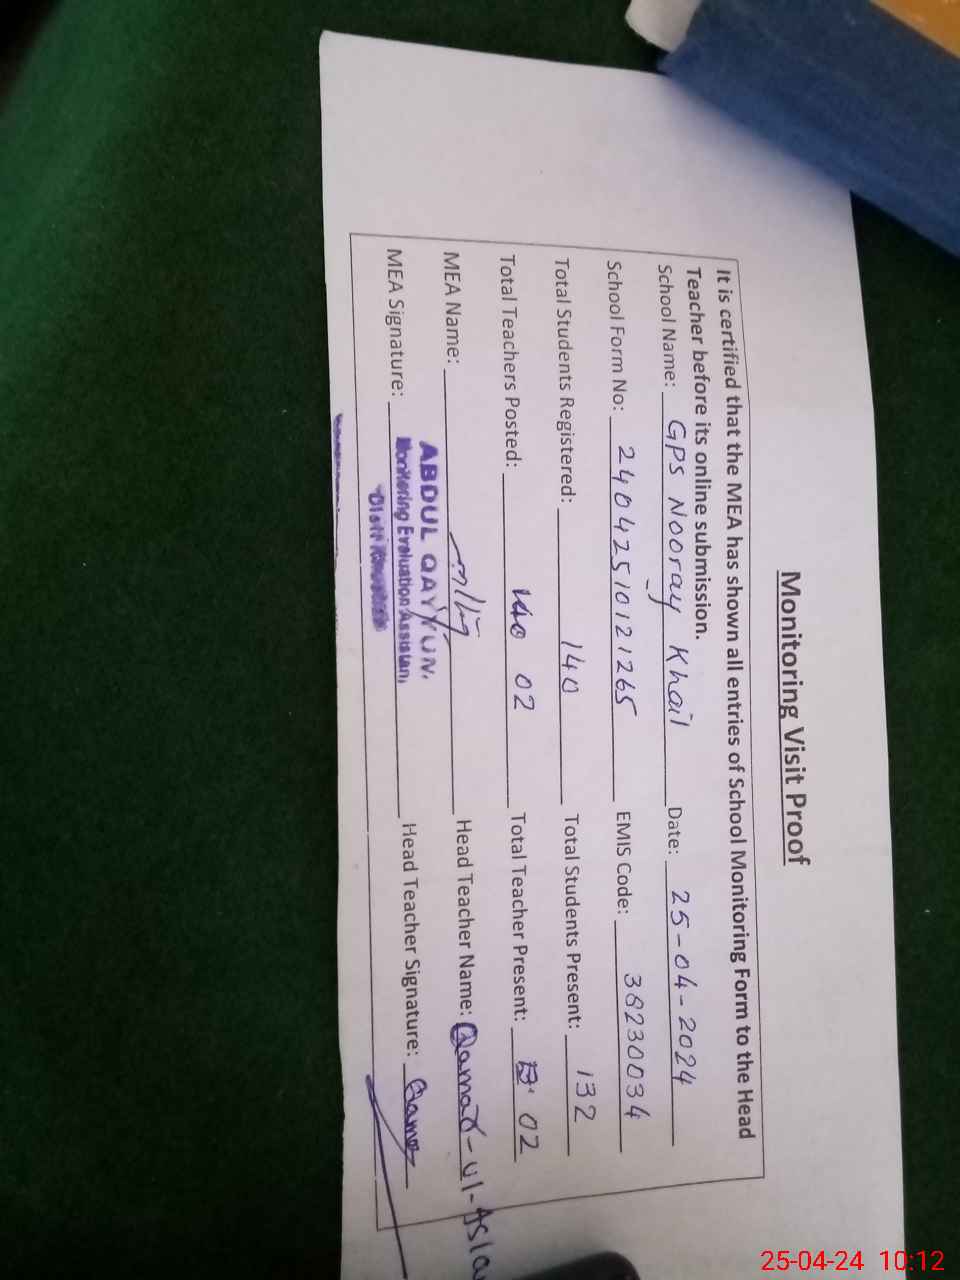 Monitoring Visit Proof
It is certified that the MEA has shown all entries of School Monitoring Form to the Head
Teacher before its online submission.
School Name: GPS Nooray Khail Date: 25-04-2024
School Form No: 24042510121265 EMIS Code: 38230034
Total Students Registered: 140 Total Students Present: 132
Total Teachers Posted: 02 Total Teacher Present: 02
MEA Name: Head Teacher Name: Qamar-ul-Isla
ABDUL QAYYUM
MEA Signature: Head Teacher Signature: Qamar
Monitoring Evaluation Assistant
25-04-24 10:12